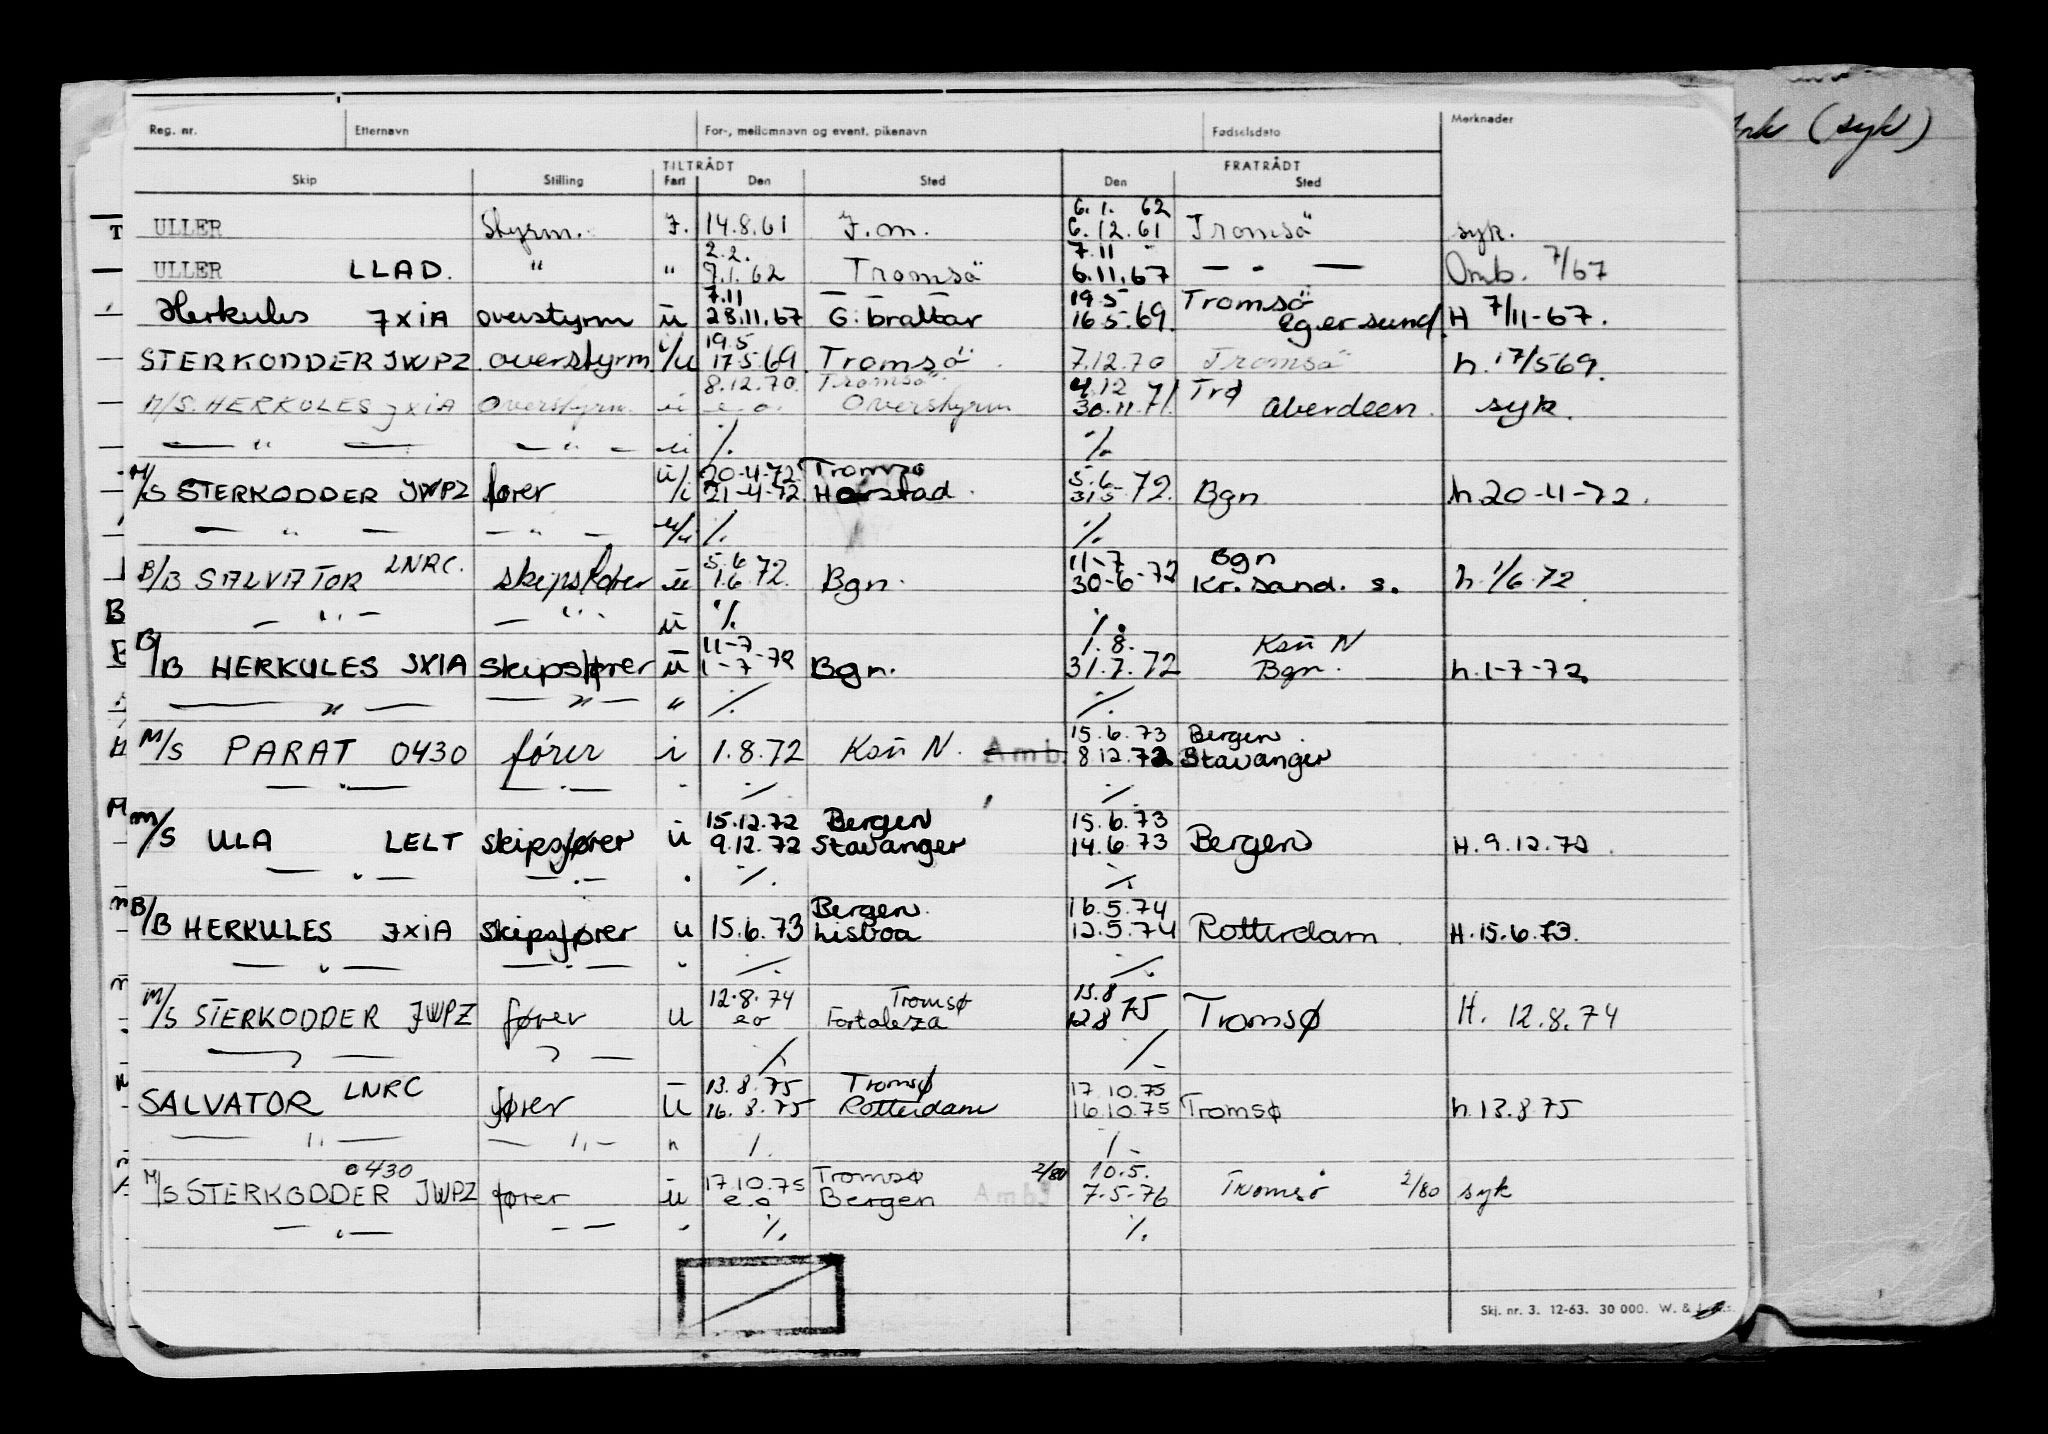 Ank (syk)
Reg. nr. Etternavn For-, mellomnavn og event. pikenavn Fødselsdato Merknader
TILTRÅDT FRATRÅDT
Skip Stilling Fart Den Sted Den Sted
6.1. 62
ULLER Styrm. J. 14.8.61 J.m. 6.12.61 Tromsö syk.
2.2. 7.11
ULLER LLAD. " " 9.1.62 Tromsö 6.11.67 — " — Omb. 7/67
7.11 19.5 Tromsö
Herkules JXIA overstyrm u 28.11.67 Gibraltar 16.5.69. Egersund H 7/11-67.
19.5
STERKODDER JWPZ overstyrm i/u 17.5.69 Tromsö 7.12.70 Tromsö h.17/569.
8.12.70. Tromsö 4.12 Trø
M/S. HERKULES JXIA Overstyrm. u e.o. Overstyrm 30.11.71. Aberdeen. syk.
— " — — " — u ·/. ·/.
20-4-72 Tromsø 5.6
M/S STERKODDER JWPZ fører u/i 21-4-72 Harstad. 31.5-72. Bgn h.20-4-72.
— " — — " — u/i ·/. ·/.
LNRC. 5.6 11-7 Bgn
B/B SALVATOR skipsfører u 1.6.72. Bgn. 30-6-72 Kr.sand. s. h.1/6.72
— " — — " — u ·/. ·/.
11-7 1.8. Ksu N
B/B HERKULES JXIA Skipsfører u 1-7-72 Bgn. 31.7.72 Bgn. h.1-7-72.
— " — — " — " ·/. ·/.
15.6.73 Bergen.
M/S PARAT 0430 fører i 1.8.72 Ksu N. Amb. 8.12.72 Stavanger
— " — — " — " ·/. ·/.
15.12.72 Bergen 15.6.73
M/S ULA LELT skipsfører u 9.12.72 Stavanger 14.6.73 Bergen H.9.12.72.
— " — — " — " ·/. ·/.
Bergen. 16.5.74
B/B HERKULES JXIA Skipsfører u 15.6.73 Lisboa 12.5.74 Rotterdam. H.15.6.73.
— " — — " — " ·/. ·/.
12.8.74 Tromsø 13.8
M/S STERKODDER JWPZ fører u e.o Fortaleza 12.8 75 Tromsø H. 12.8.74
— " — " — ·/. ·/.
LNRC 13.8.75 Tromsø 17.10.75
SALVATOR fører u 16.8.75 Rotterdam 16.10.75 Tromsø h.13.8.75
— " — — " — " ·/. ·/.
0430 17.10.75 Tromsø 2/80 10.5.
M/S STERKODDER JWPZ fører u e.o Bergen Amb 7-5-76 Tromsø 2/80 syk
— " — — — " ·/. ·/.
Skj. nr. 3. 12-63. 30 000. W. &